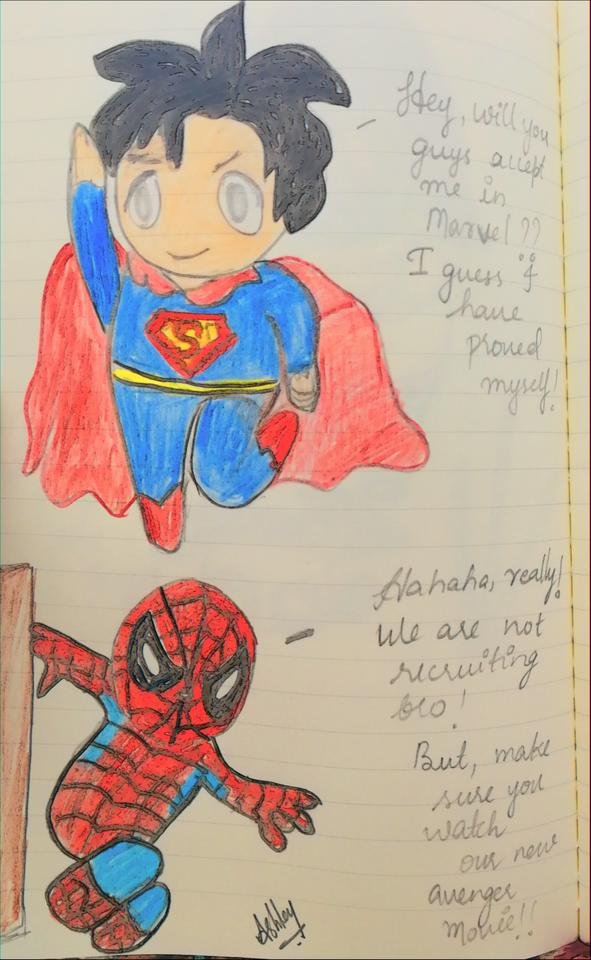 Hey, will you
guys accept
me in
Marvel ??
I guess if
have
proved
myself!
S
Hahaha, really!
We are not
recruiting
bro!
But, make
sure you
watch
our new
avenger
movie!!
Ashley